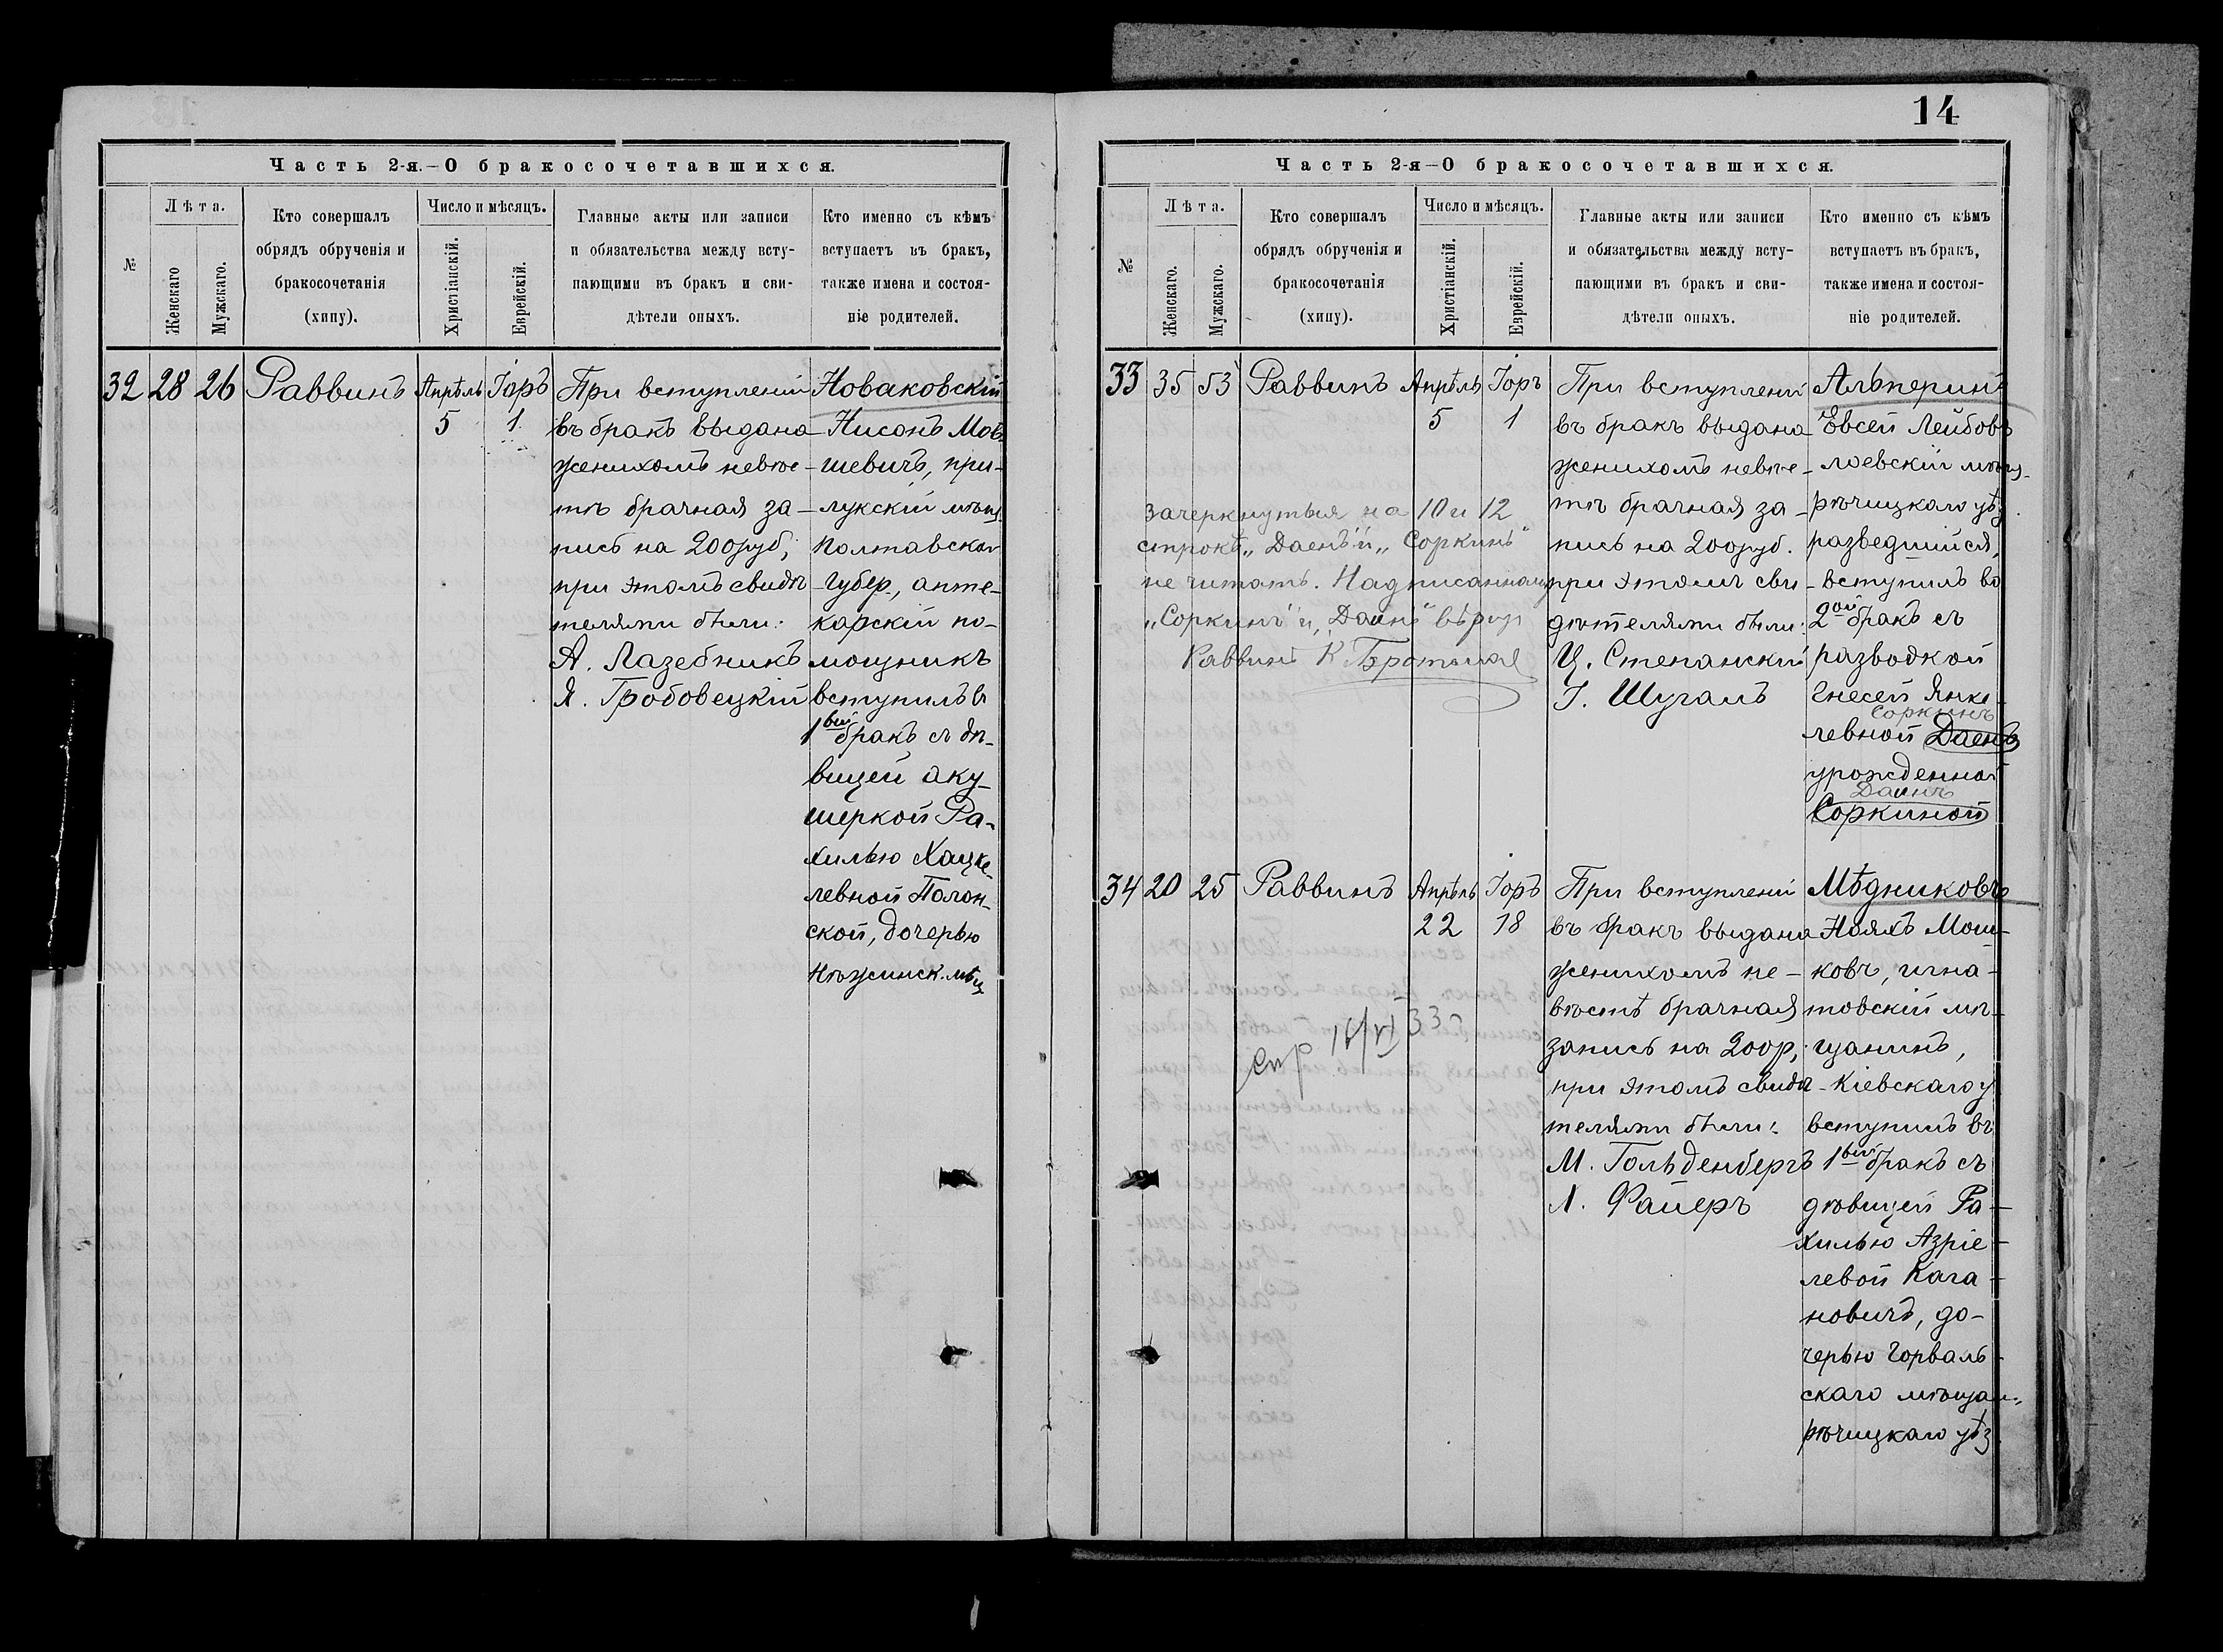 Часть 2-я.—О бракосочетавшихся.
№
Лѣта.
Женскаго
Мужскаго.
Кто совершалъ
обрядъ обрученія и
бракосочетанія
(хипу).
Число и мѣсяцъ.
Христіанскій.
Еврейскій.
Главные акты или записи
и обязательства между всту-
пающими въ бракъ и сви-
дѣтели оныхъ.
Кто именно съ кѣмъ
вступаетъ въ бракъ,
также имена и состоя-
ніе родителей.
32 28 26 Раввинъ Апрѣль 5 Іоръ 1
При вступленіи
въ бракъ выдана
женихомъ невѣс-
тѣ брачная за-
пись на 200 руб;
при этомъ свидѣ
телями были:
А. Лазебникъ
Я. Гробовецкій
Новаковскій
Нисонъ Мов
шевичъ, при-
лукскій мѣщ.
Полтавской
губер., апте-
карскій по-
мощникъ
вступилъ въ
1вый бракъ съ дѣ-
вицей аку-
шеркой Ра-
хилью Хацке-
левной Полон-
ской, дочерью
Нѣжинск. мѣщ
14
Часть 2-я—О бракосочетавшихся.
№
Лѣта.
Женскаго.
Мужскаго.
Кто совершалъ
обрядъ обрученія и
бракосочетанія
(хипу).
Число и мѣсяцъ.
Христіанскій.
Еврейскій.
Главные акты или записи
и обязательства между всту-
пающими въ бракъ и сви-
дѣтели оныхъ.
Кто именно съ кѣмъ
вступаетъ въ бракъ,
также имена и состоя-
ніе родителей.
33 35 53 Раввинъ Апрѣль 5 Іоръ 1
Зачеркнутыя на 10 и 12
строкѣ „Даенъ" и „Соркинъ"
не читать. Надписанному
„Соркинъ" и „Даинъ" вѣрить
Раввинъ
При вступленіи
въ бракъ выдана
женихомъ невѣс-
тѣ брачная за-
пись на 200 руб.
при этомъ сви-
дѣтелями были:
Ц. Степанскій
І. Шугалъ
Альперинъ
Евсей Лейбовъ
лоевскій мѣщ.
рѣчицкаго уѣз.
разведшійся,
вступилъ во
2ой бракъ съ
разводкой
Гнесей Янке-
Соркинъ
левной Даенъ
урожденной
Даинъ
Соркиной
34 20 25 Раввинъ Апрѣль 22 Іоръ 18
спр 16/VI 33
При вступленіи
въ бракъ выдана
женихомъ не-
вѣстѣ брачная
запись на 200 р,
при этомъ свидѣ
телями были:
М. Гольденбергъ
Л. Файеръ
Мѣдниковъ
Ноахъ Мош-
ковъ, игна-
товскій мѣ-
щанинъ,
Кіевскаго у
вступилъ въ
1вый бракъ съ
дѣвицей Ра-
хилью Азріе-
левой Кага-
новичъ, до-
черью Горваль-
скаго мѣщан.
рѣчицкаго уѣз